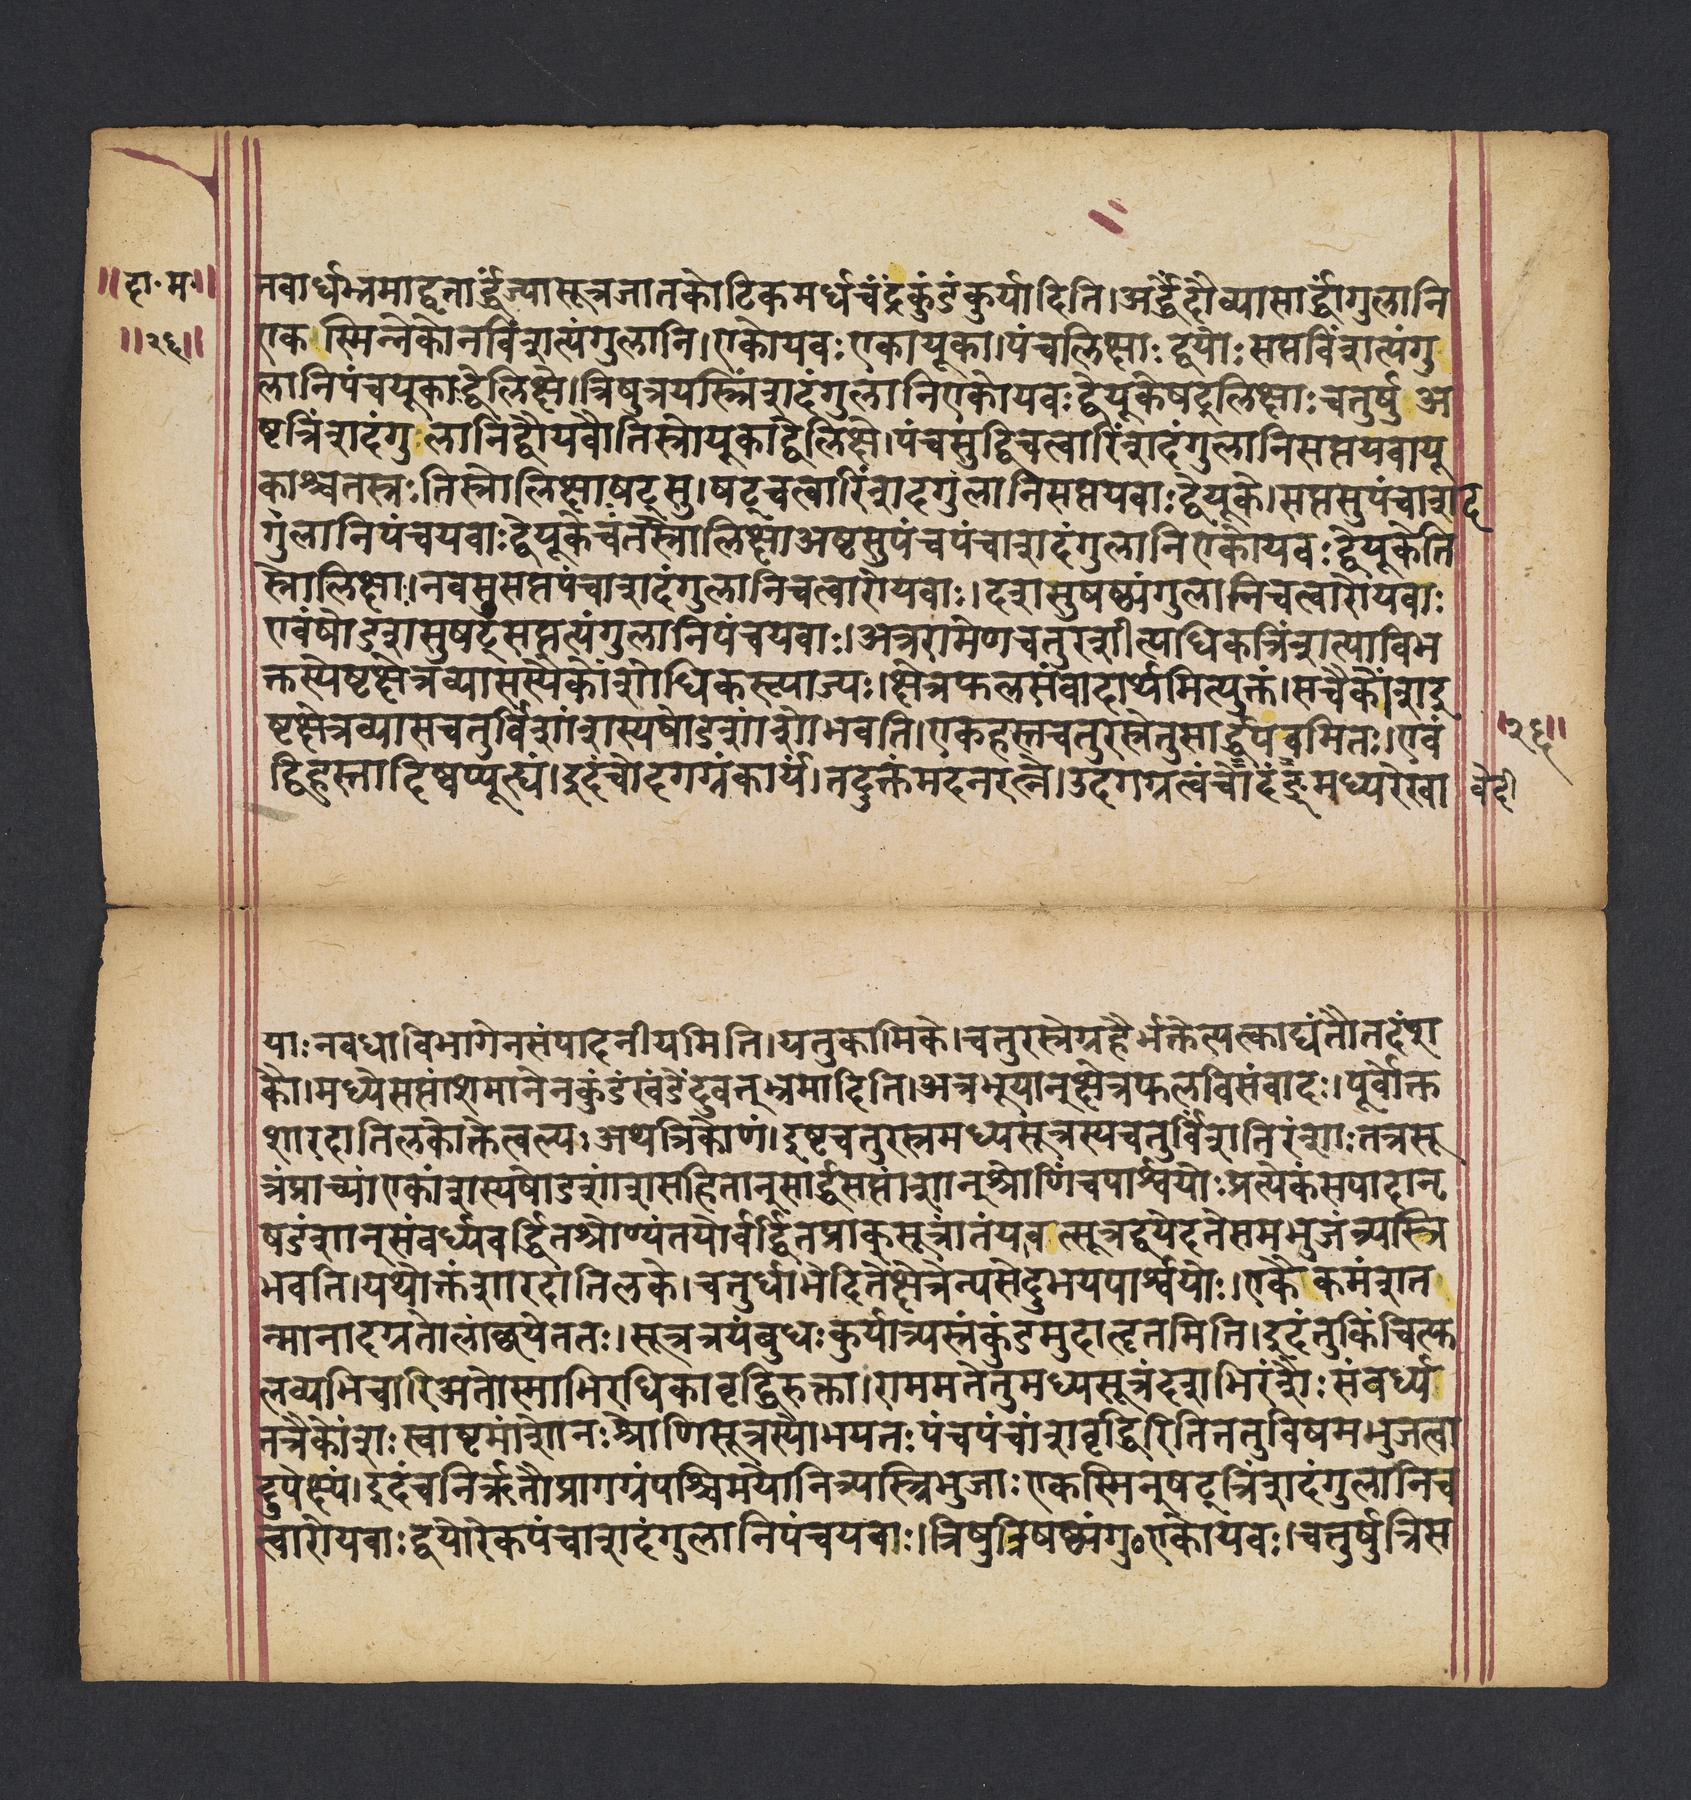 ॥दा॰म॰॥
॥२६॥
नवार्धभ्रमाद्वृतार्द्धंज्यासूत्रजातकोटिकमर्धचंद्रंकुंडंकुर्यादिति।अर्द्धेंदौव्यासार्द्धांगुलानि
एकस्मिन्नेकोनविंशत्यंगुलानि।एकोयवःएकायूका।पंचलिक्षाःद्वयोःसप्तविंशत्यंगु
लानिपंचयूकाःद्वेलिक्षे।त्रिषुत्रयस्त्रिंशदंगुलानिएकोयवःद्वेयूकेषट्लिक्षाःचतुर्षुअ
ष्टत्रिंशदंगुलानिद्वौयवौतिस्रोयूकाद्वेलिक्षे।पंचसुद्विचत्वारिंशदंगुलानिसप्तयवायू
काश्चतस्त्रःतिस्रोलिक्षाषट्सु।षट्चत्वारिंशदगुंलानिसप्तयवाःद्वेयूके।सप्तसुपंचाशद
गुंलानिपंचयवाःद्वेयूकेचंतस्रोलिक्षाअष्टसुपंचपंचाशदंगुलानिएकोयवःद्वेयूकेति
स्रोलिक्षाः।नवसुसप्तपंचाशदंगुलानिचत्वारोयवाः।दशसुषष्ठ्यंगुलानिचत्वारोयवाः
एवंषोडशसुषट्सप्तत्यंगुलानिपंचयवाः।अत्ररामेणचतुरशीत्यधिकत्रिंशत्याविभ
क्तस्येष्टक्षेत्रव्यासस्यैकोंशोधिकस्त्याज्यः।क्षेत्रफलसंवादार्थमित्युक्तं।सचैकोंशइ
ष्टक्षेत्रव्यासचतुर्विंशांशस्यषोडशांशोभवति।एकहस्तचतुरस्रेतुसार्द्धयवमितः।एवं
द्विहस्तादिष्वप्यूह्यं।इदंचोदगग्रंकार्यं।तदुक्तंमदनरत्ने।उदगग्रत्वंचोदंङ्मध्यरेखा
॥२६॥
वेदी
याःनवधाविभागेनसंपादनीयमिति।यतुकामिके।चतुरस्रेग्रहैर्भक्तेत्यत्काद्यंतौतदंश
कौ।मध्येसप्तांशमानेनकुंडंखंडेंदुवत्भ्रमादिति।अत्रभूयान्क्षेत्रफलविसंवादः।पूर्वोक्त
शारदातिलकोक्तेत्वल्पःअथत्रिकोणं।इष्टचतुरस्रमध्यसूत्रस्यचतुर्विंशतिरंशाःतत्रसू
त्रंप्राच्यांएकांशस्यषोडशांशसहितान्सार्द्धसप्तांशान्श्रोणिंचपार्श्वयोःप्रत्येकंसपादान्
षडंशान्संवर्ध्यवर्द्धितश्रोण्यंतयोर्वर्द्धितप्राक्सूत्रांतंयवत्सूत्रद्वयेदतेसमभुजंत्र्यस्त्रि
भवति।यथोक्तंशारदातिलके।चतुर्धाभेदितेक्षेत्रेन्यसेदुभयपार्श्वयोः।एकैकमंशत
न्मानादग्रतोलांछयेततः।सूत्रत्रयंबुधःकुर्यात्र्यस्रंकुंडमुदाहृतमिति।इदंतुकिंचित्फ
लव्यभिचारिअतोस्माभिरधिकावृद्धिरुक्ता।राममतेतुमध्यसूत्रंदशभिरंशैःसंवर्ध्य
तत्रैकोंशःस्वाष्टमांशोनःश्रोणिसूत्रस्योभयतःपंचपंचांशवृद्धिरितितत्तुविषमभुजत्वा
दुपेक्ष्यं।इदंचनिर्ऋतौप्रागग्रंपश्चिमयोनित्र्यस्त्रिभुजाःएकस्मिन्षट्त्रिंशदंगुलानिच
त्वारोयवाःद्वयोरेकपंचाशदंगुलानिपंचयवाः।त्रिषुत्रिषष्ठ्यंगु०एकोयवः।चतुर्षुत्रिस